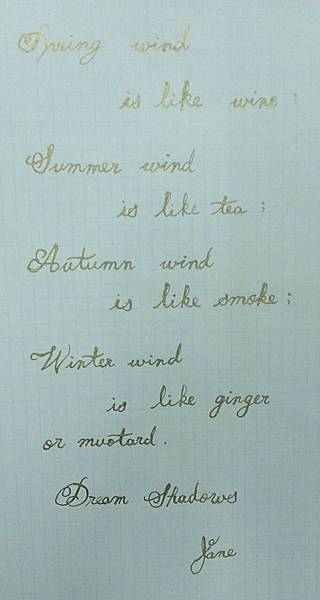 Spring wind
is like wine;
Summer wind
is like tea;
Autumn wind
is like smoke;
Winter wind
is like ginger
or mustard.
Dream Shadows
Jane